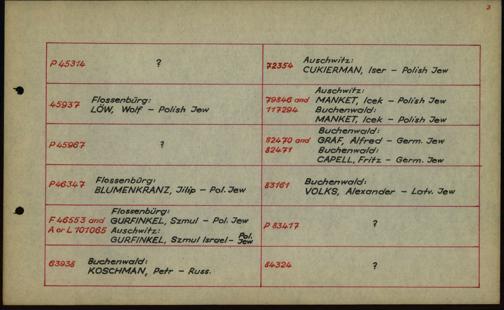 3
P 45314 ?
45937 Flossenbürg:
LÖW, Wolf - Polish Jew
P 45967 ?
P 46347 Flossenbürg:
BLUMENKRANZ, Jilip - Pol. Jew
Flossenbürg:
F 46553 and GURFINKEL, Szmul - Pol. Jew
A or L 101065 Auschwitz:
GURFINKEL, Szmul Israel - Pol. Jew
63938 Buchenwald:
KOSCHMAN, Petr - Russ.
72354 Auschwitz:
CUKIERMAN, Iser - Polish Jew
Auschwitz:
79846 and MANKET, Icek - Polish Jew
117294 Buchenwald:
MANKET, Icek - Polish Jew
Buchenwald:
82470 and GRAF, Alfred - Germ. Jew
82471 Buchenwald:
CAPELL, Fritz - Germ. Jew
83161 Buchenwald:
VOLKS, Alexander - Latv. Jew
P 83417 ?
84324 ?